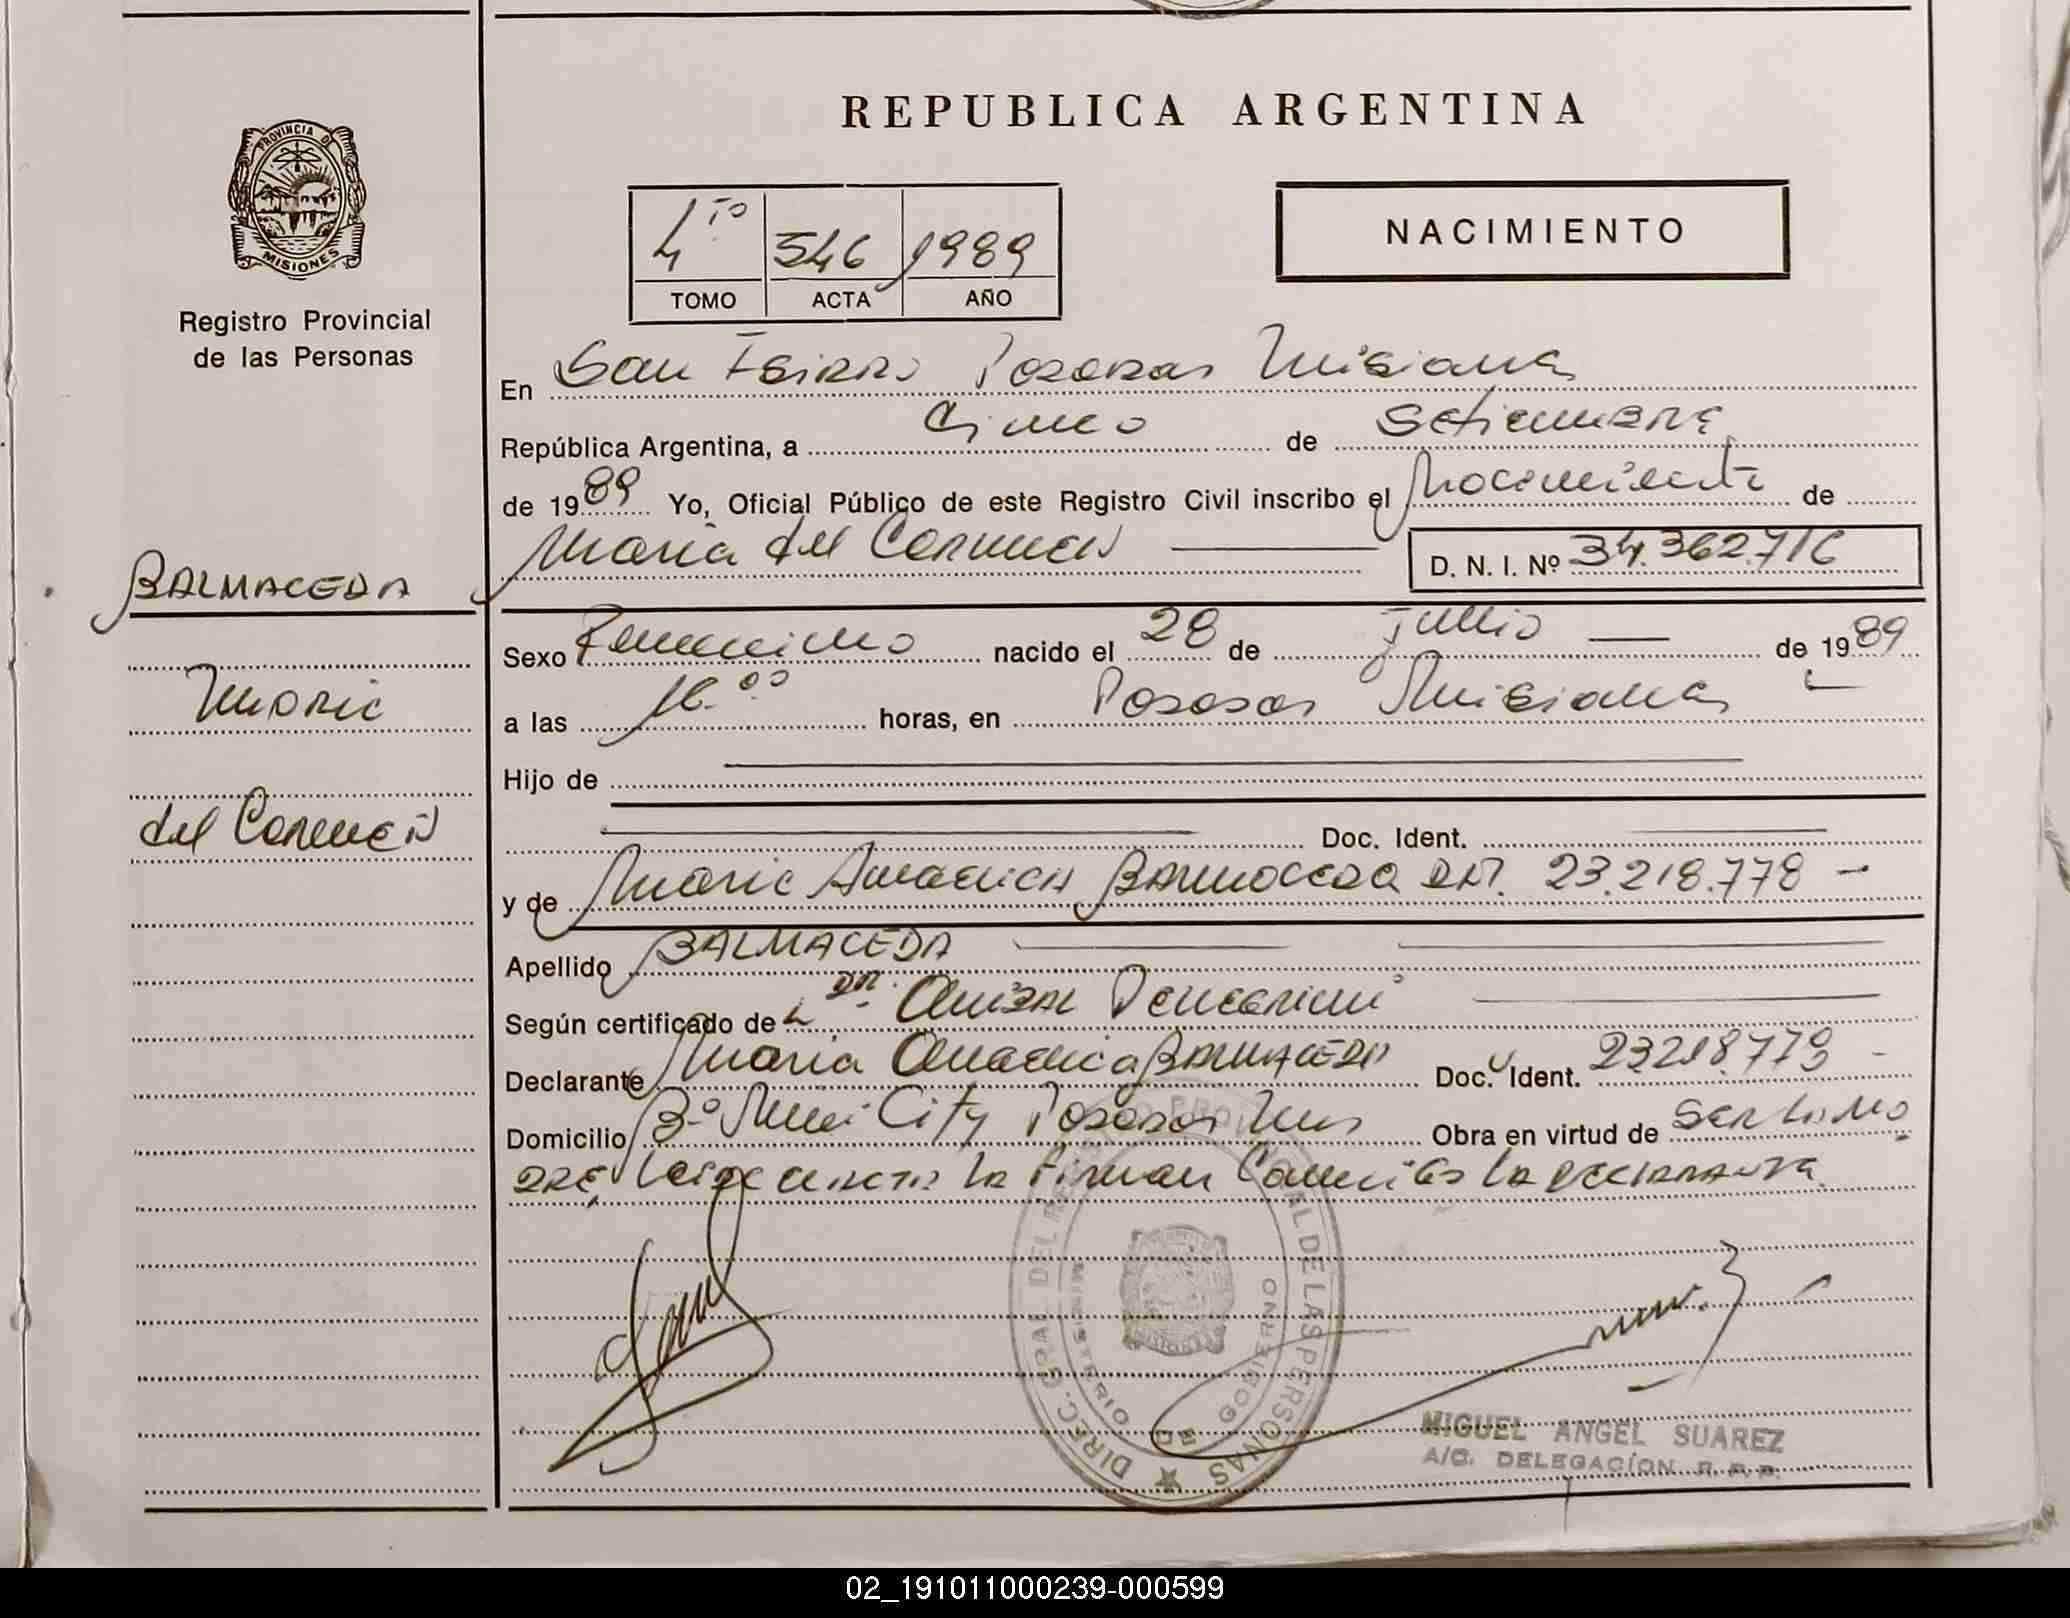 REPUBLICA ARGENTINA
PROVINCIA DE
MISIONES
Registro Provincial
de las Personas
4to 546 1989
TOMO ACTA AÑO
NACIMIENTO
En San Isidro Posadas Misiones
República Argentina, a Cinco de Setiembre
de 1989 Yo, Oficial Público de este Registro Civil inscribo el Nacimiento de
Maria del Carmen D. N. I. Nº 34.362.716
BALMACEDA
Maria
del Carmen
Sexo Femenino nacido el 28 de Jullio de 1989
a las horas, en Posadas Misiones
Hijo de
Doc. Ident.
y de Maria America Balmaceda DNI. 23.218.778 -
Apellido BALMACEDA
Según certificado de Dr. Anibal
Declarante Maria America BALMACEDA Doc. Ident. 23218.779 -
Domicilio Bº Mini City Posadas Mnes Obra en virtud de ser su ma
dre Leida el acta la firman Conmigo la declarante
DIREC. GRAL. DEL REGISTRO PROVINCIAL DE LAS PERSONAS
MINISTERIO DE GOBIERNO
MIGUEL ANGEL SUAREZ
A/C. DELEGACION R. P. P.
02_191011000239-000599